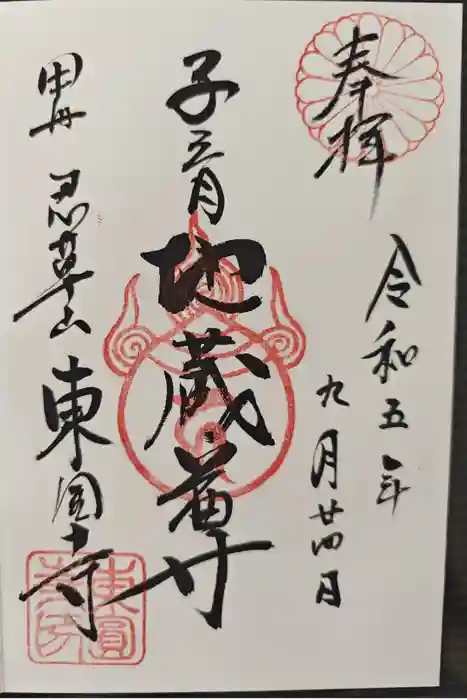 奉拝
令和五年
九月廿四日
子安
地蔵尊
甲州 忍草山 東圓寺
東圓
寺印